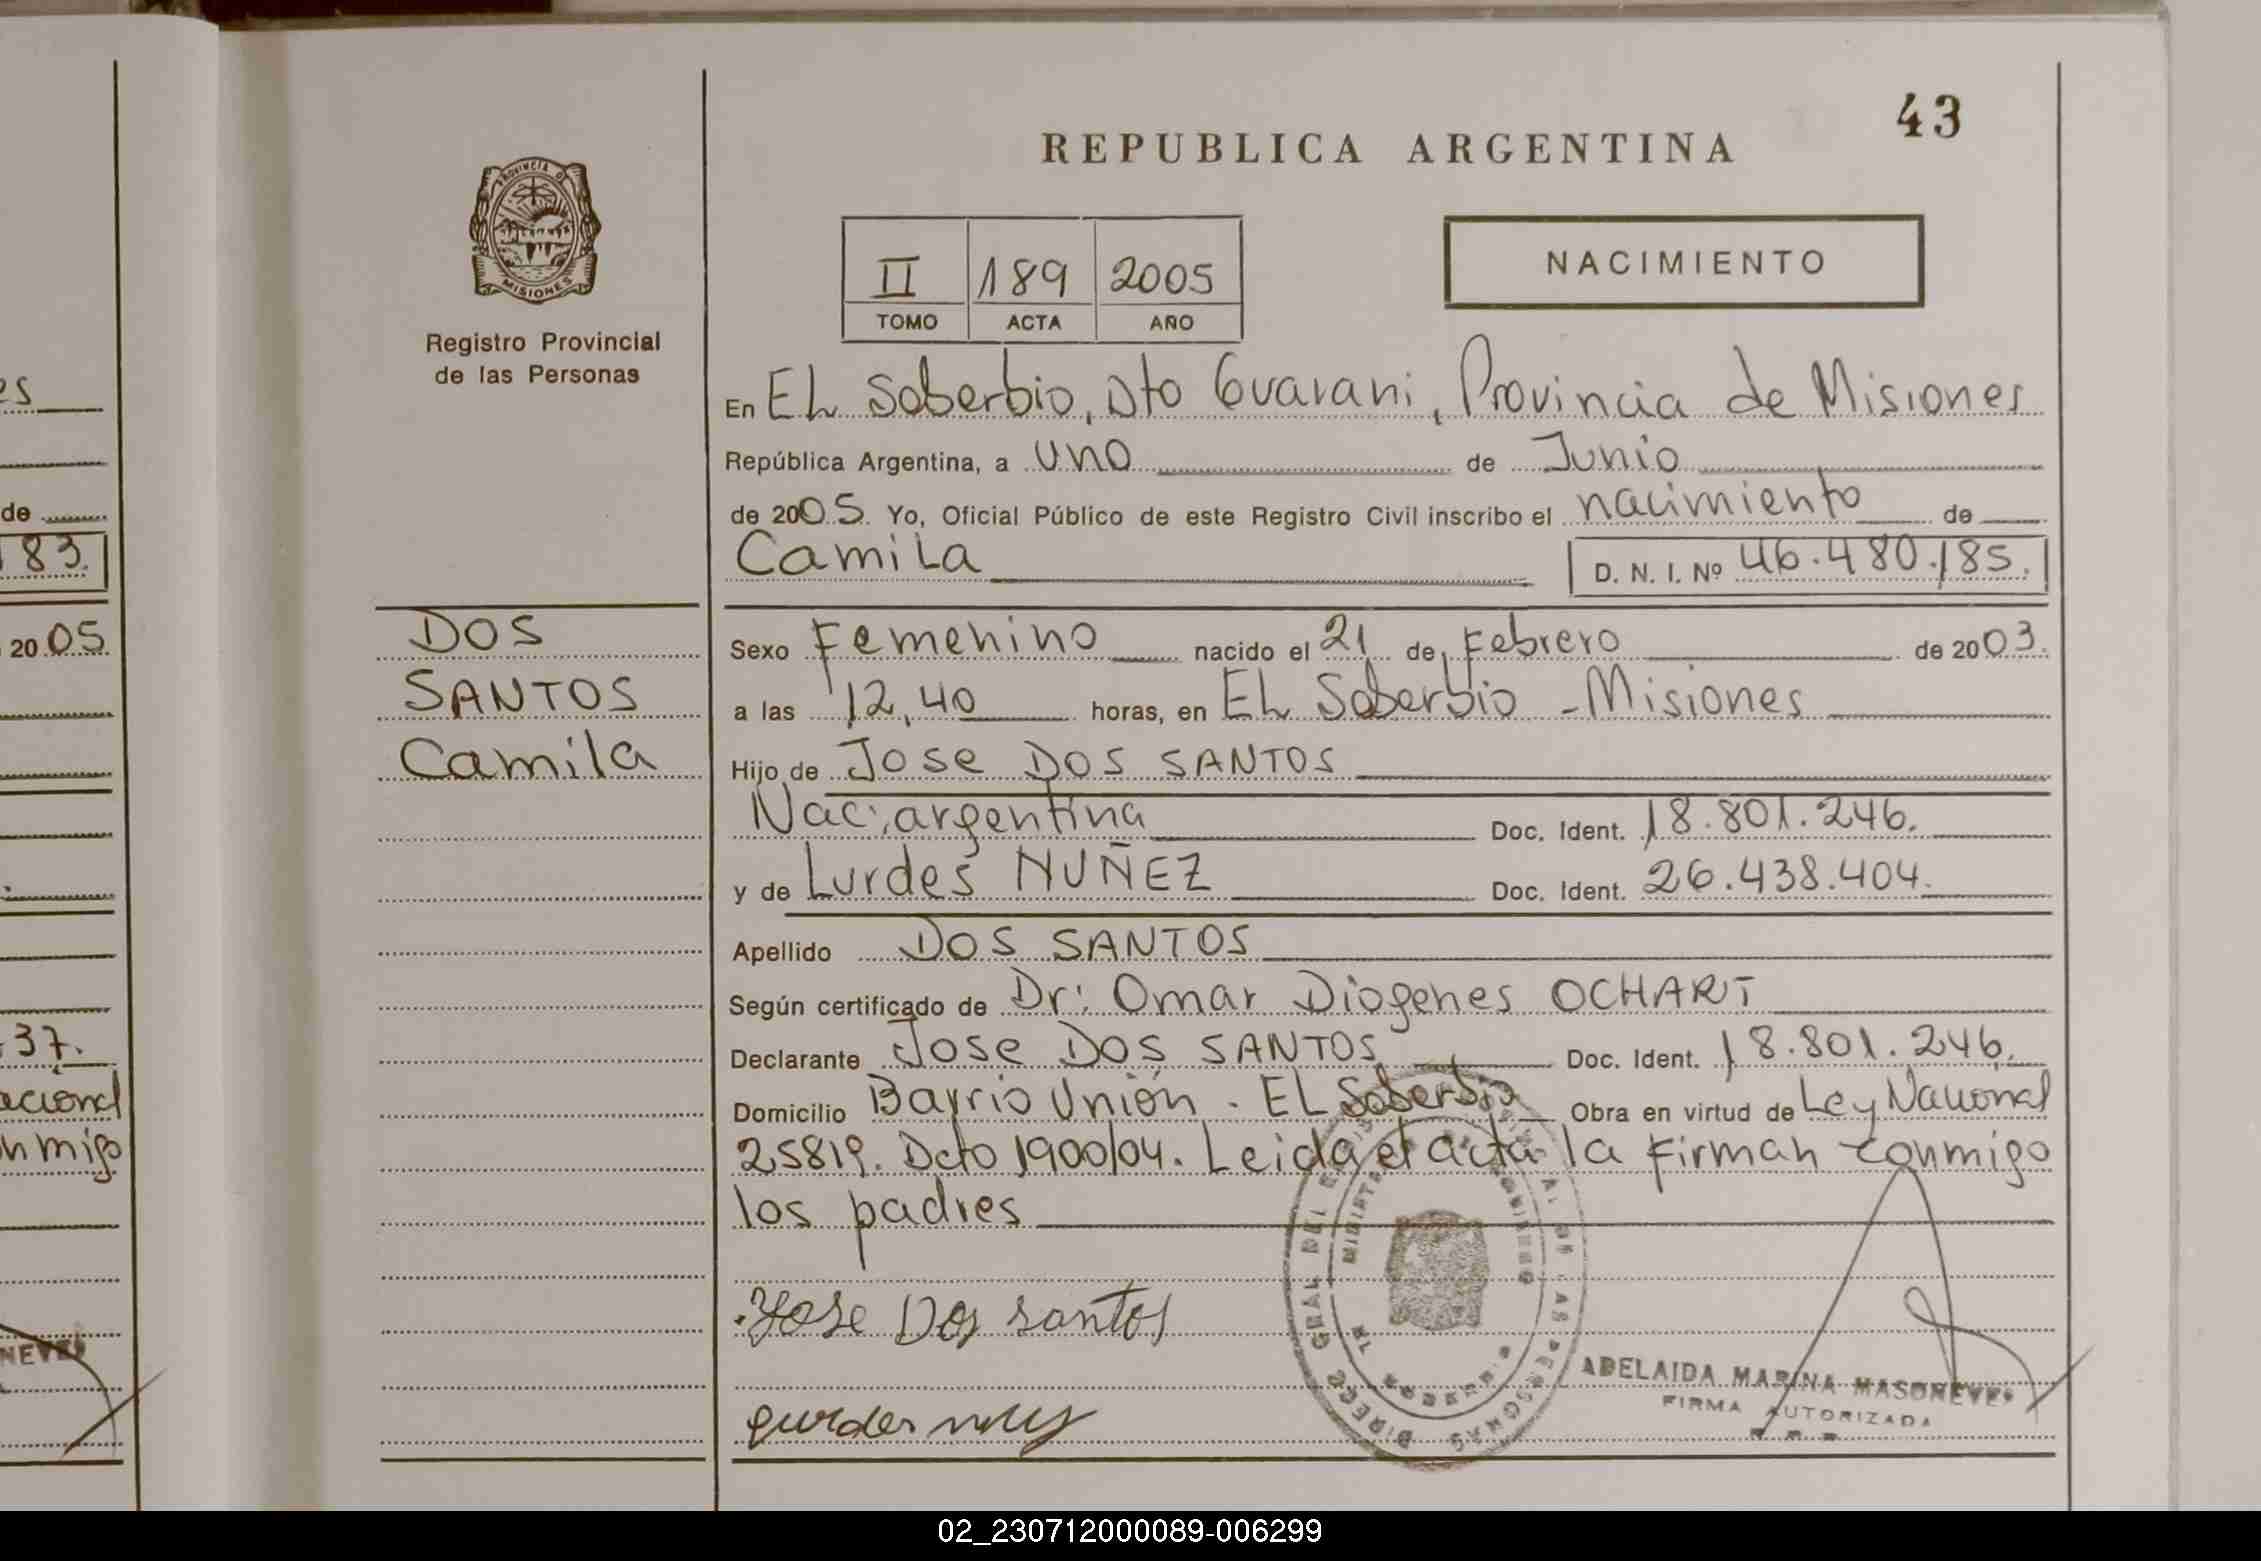 43
REPUBLICA ARGENTINA
PROVINCIA DE
MISIONES
Registro Provincial
de las Personas
II 189 2005
TOMO ACTA AÑO
NACIMIENTO
En EL Soberbio, Dto Guarani, Provincia de Misiones
República Argentina, a uno de Junio
de 2005. Yo, Oficial Público de este Registro Civil inscribo el nacimiento de
Camila D. N. I. Nº 46.480.185.
DOS
SANTOS
Camila
Sexo Femenino nacido el 21 de Febrero de 2003.
a las 12,40 horas, en EL Soberbio - Misiones
Hijo de Jose DOS SANTOS
Nac: argentina Doc. Ident. 18.801.246.
y de Lurdes NUÑEZ Doc. Ident. 26.438.404.
Apellido DOS SANTOS
Según certificado de Dr: Omar Diogenes OCHART
Declarante Jose DOS SANTOS Doc. Ident. 18.801.246.
Domicilio Barrio Unión - EL Soberbio Obra en virtud de Ley Nacional
25819. Dcto 1900/04. Leida el acta la firman conmigo
los padres
Jose Dos santos
ADELAIDA MARINA MASONEVES
FIRMA AUTORIZADA
es
de
183.
2005
37.
acional
nmigo
NEVES
02_230712000089-006299